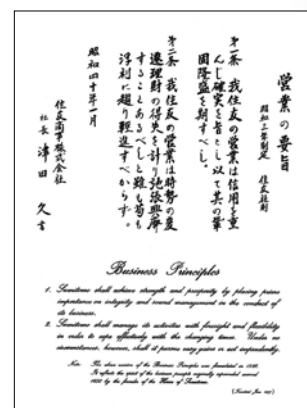 営業の要旨
昭和三年制定 住友社則
第一条 我住友の営業は信用を重
んじ確実を旨とし以て其の鞏
固隆盛を期すべし。
第二条 我住友の営業は時勢の変
遷理財の得失を計り弛張興廃
することあるべしと雖も苟も
浮利に趨り軽進すべからず。
昭和四十年一月
住友商事株式会社
社長 津田 久
Business Principles
1. Sumitomo shall achieve strength and prosperity by placing prime
importance on integrity and sound management in the conduct of
its business.
2. Sumitomo shall manage its activities with foresight and flexibility
in order to cope effectively with the changing times. Under no
circumstances, however, shall it pursue easy gains or act imprudently.
Note: The above version of the Business Principles was formulated in 1928.
It reflects the spirit of the business precepts originally
by the founder of the House of Sumitomo.